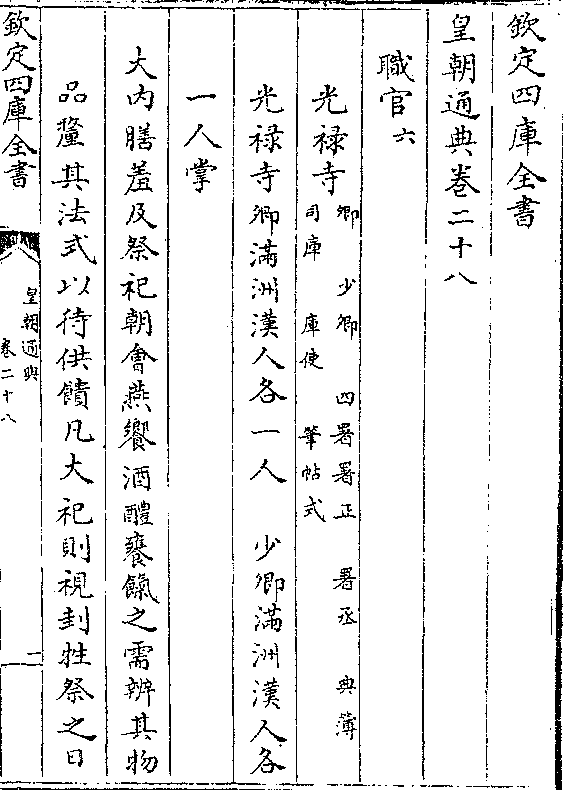 欽定四庫全書
皇朝通典卷二十八
職官六
光祿寺卿 少卿 四署署正 署丞 典簿
司庫 庫使 筆帖式
光祿寺卿滿洲漢人各一人 少卿滿洲漢人各
一人掌
大內膳羞及祭祀朝會燕饗酒醴饔餼之需辨其物
品釐其法式以待供饋凡大祀則視刲牲祭之日
欽定四庫全書
皇朝通典
卷二十八
一